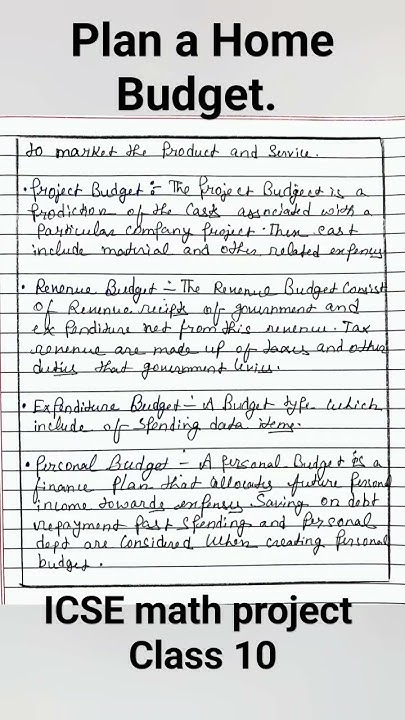 Plan a Home
Budget.
to market the Product and Service.
• Project Budget :- The Project Budject is a
Prodiction of the Casts associated with a
Particular company Project. Then cast
include material and other related expenses
• Revenue Budget :- The Revenue Budget Consist
of Revenue recipts of government and
expenditure net from this revenue. Tax
revenue are made up of taxes and other
duties that government livies.
• Expenditure Budget :- A Budget type which
include of spending data items.
• Personal Budget :- A personal Budget is a
finance plan that allocates future Personal
income towards expenses Saving on debt
repayment Past spending and Personal
dept are Considered when creating Personal
budget.
ICSE math project
Class 10